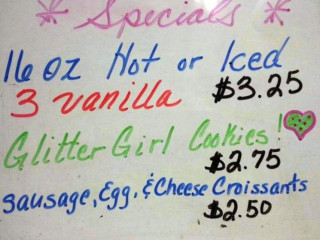 * Specials *
16 oz Hot or Iced
3 vanilla $3.25
Glitter Girl Cookies!
$2.75
Sausage, Egg, & Cheese Croissants
$2.50